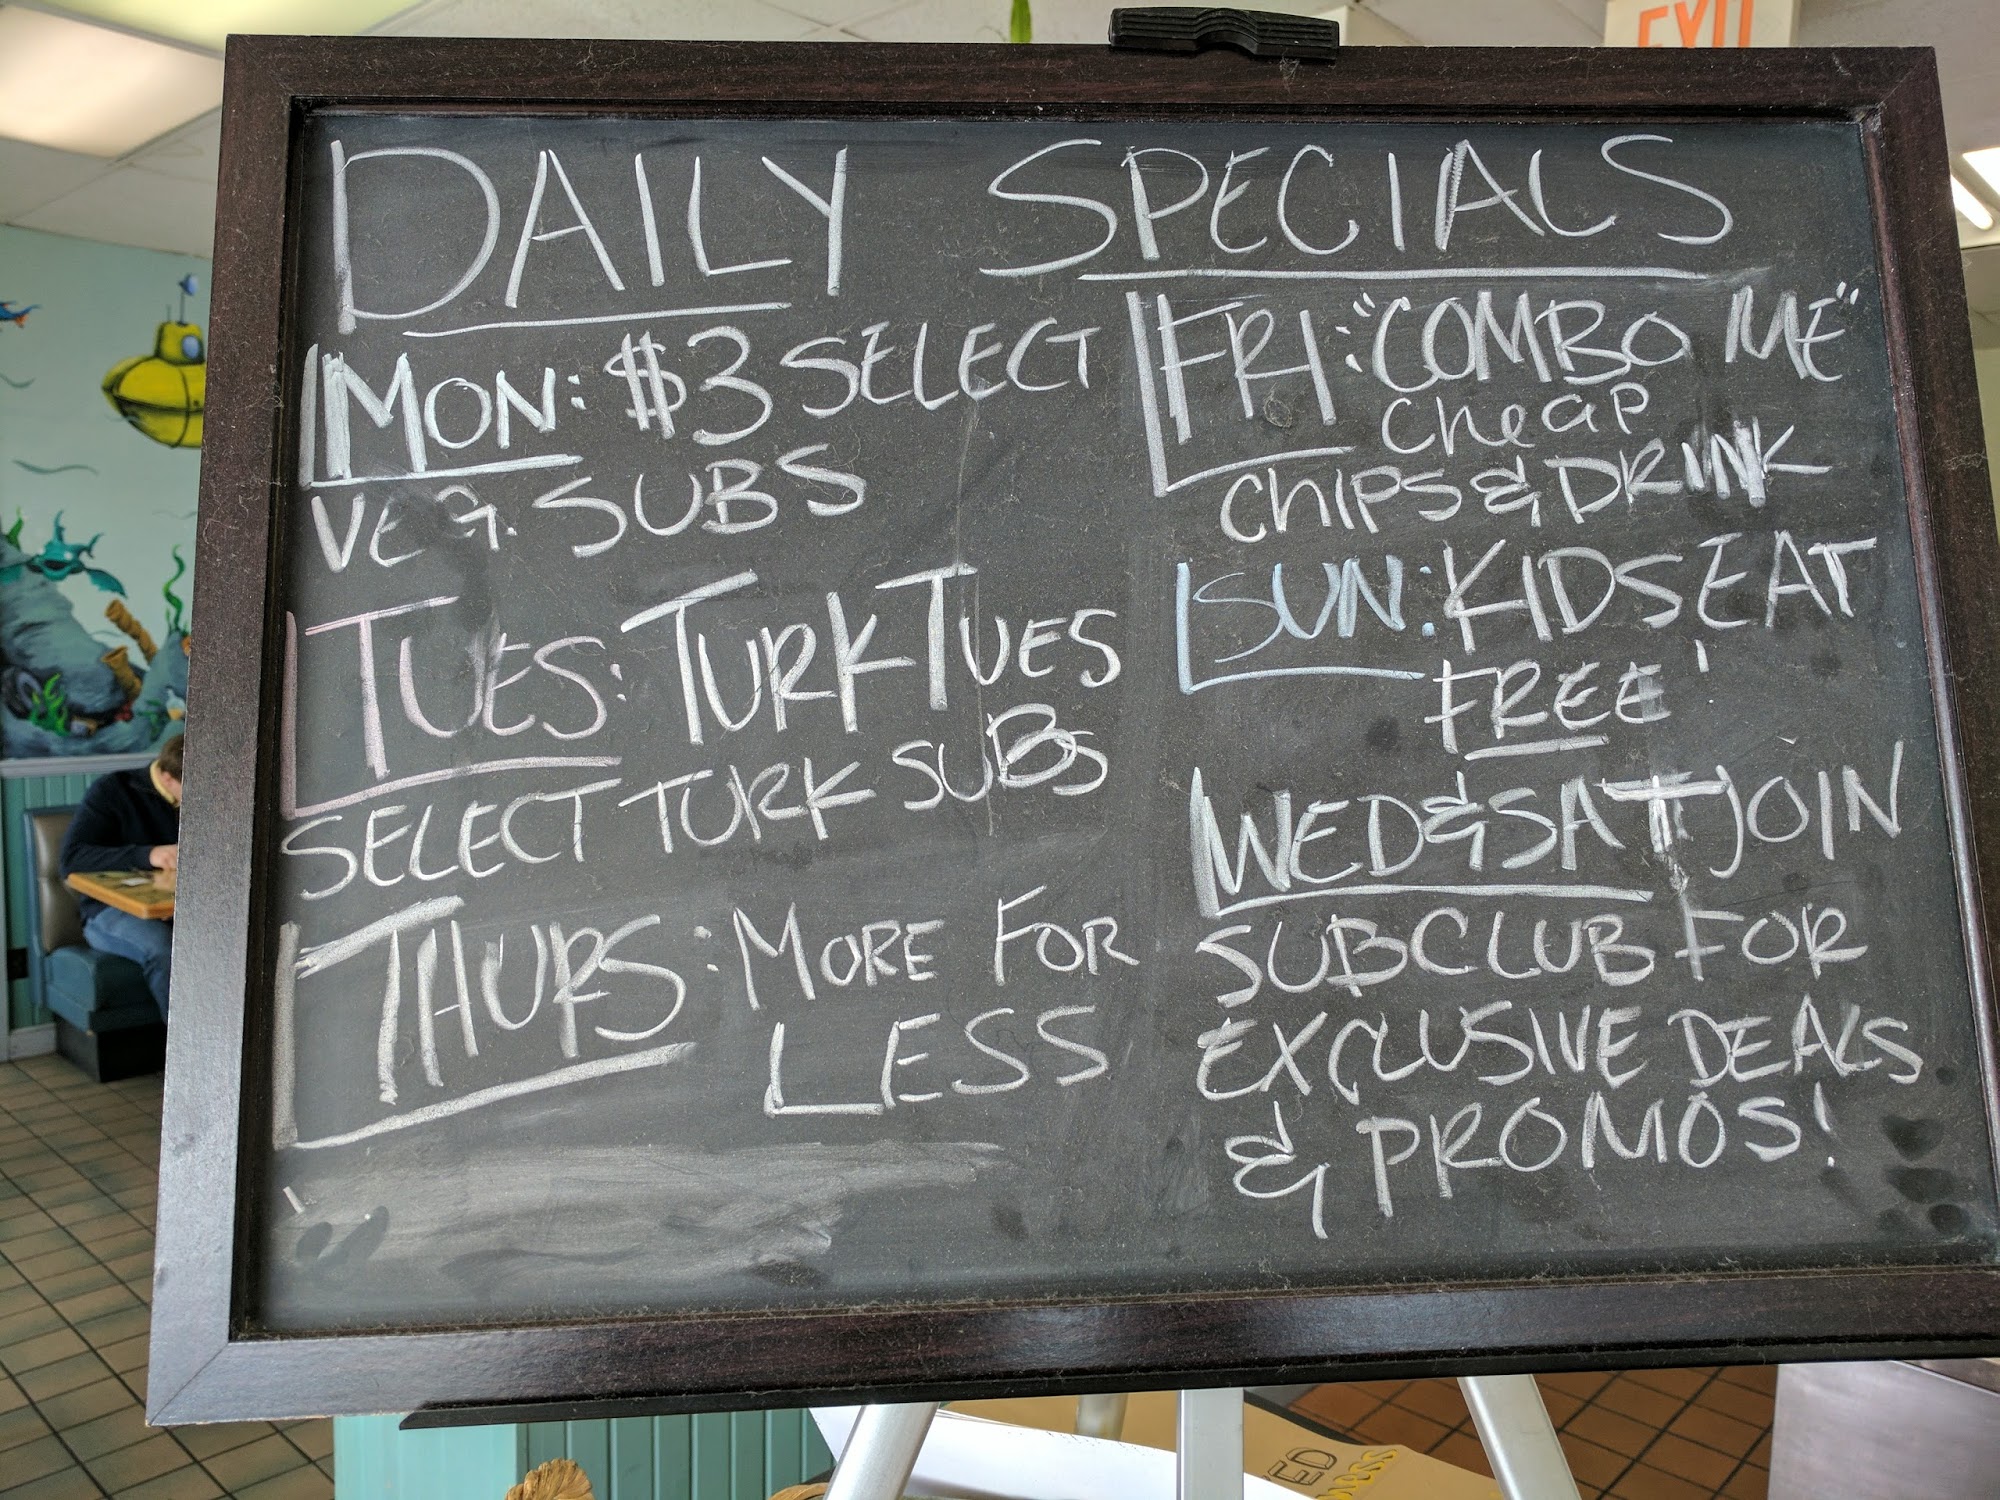 EXIT
DAILY SPECIALS
MON: $3 SELECT
VEG. SUBS
TUES: TURKTUES
SELECT TURK SUBS
THURS: MORE FOR
LESS
FRI: "COMBO ME"
Cheap
CHIPS & DRINK
SUN: KIDS EAT
FREE!
WED & SAT JOIN
SUBCLUB FOR
EXCLUSIVE DEALS
& PROMOS!